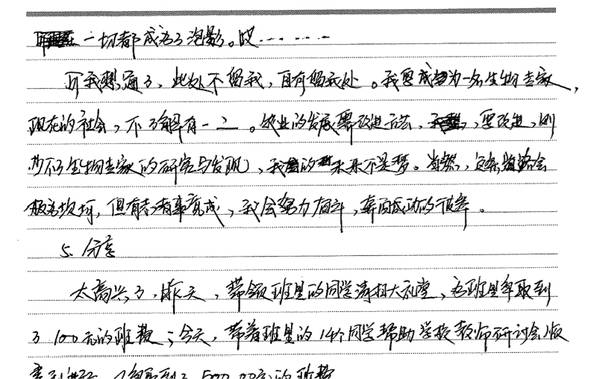 一切都成为了泡影。哎……
可我想通了，此处不留我，自有留我处。我要成为一名生物专家，
现在的社会，不了解有一二。农业的发展需改进方法，要改进，则
少不了生物专家的研究与发现，我的未来不是梦。当然，这条道路会
极为坎坷，但有志者事竟成，我会努力奋斗，奔向成功的彼岸。
5. 分享
太高兴了，昨天，带领班里的同学清扫大礼堂，为班里争取到
了100元的班费；今天，带着班里的14个同学帮助学校教师研讨会版